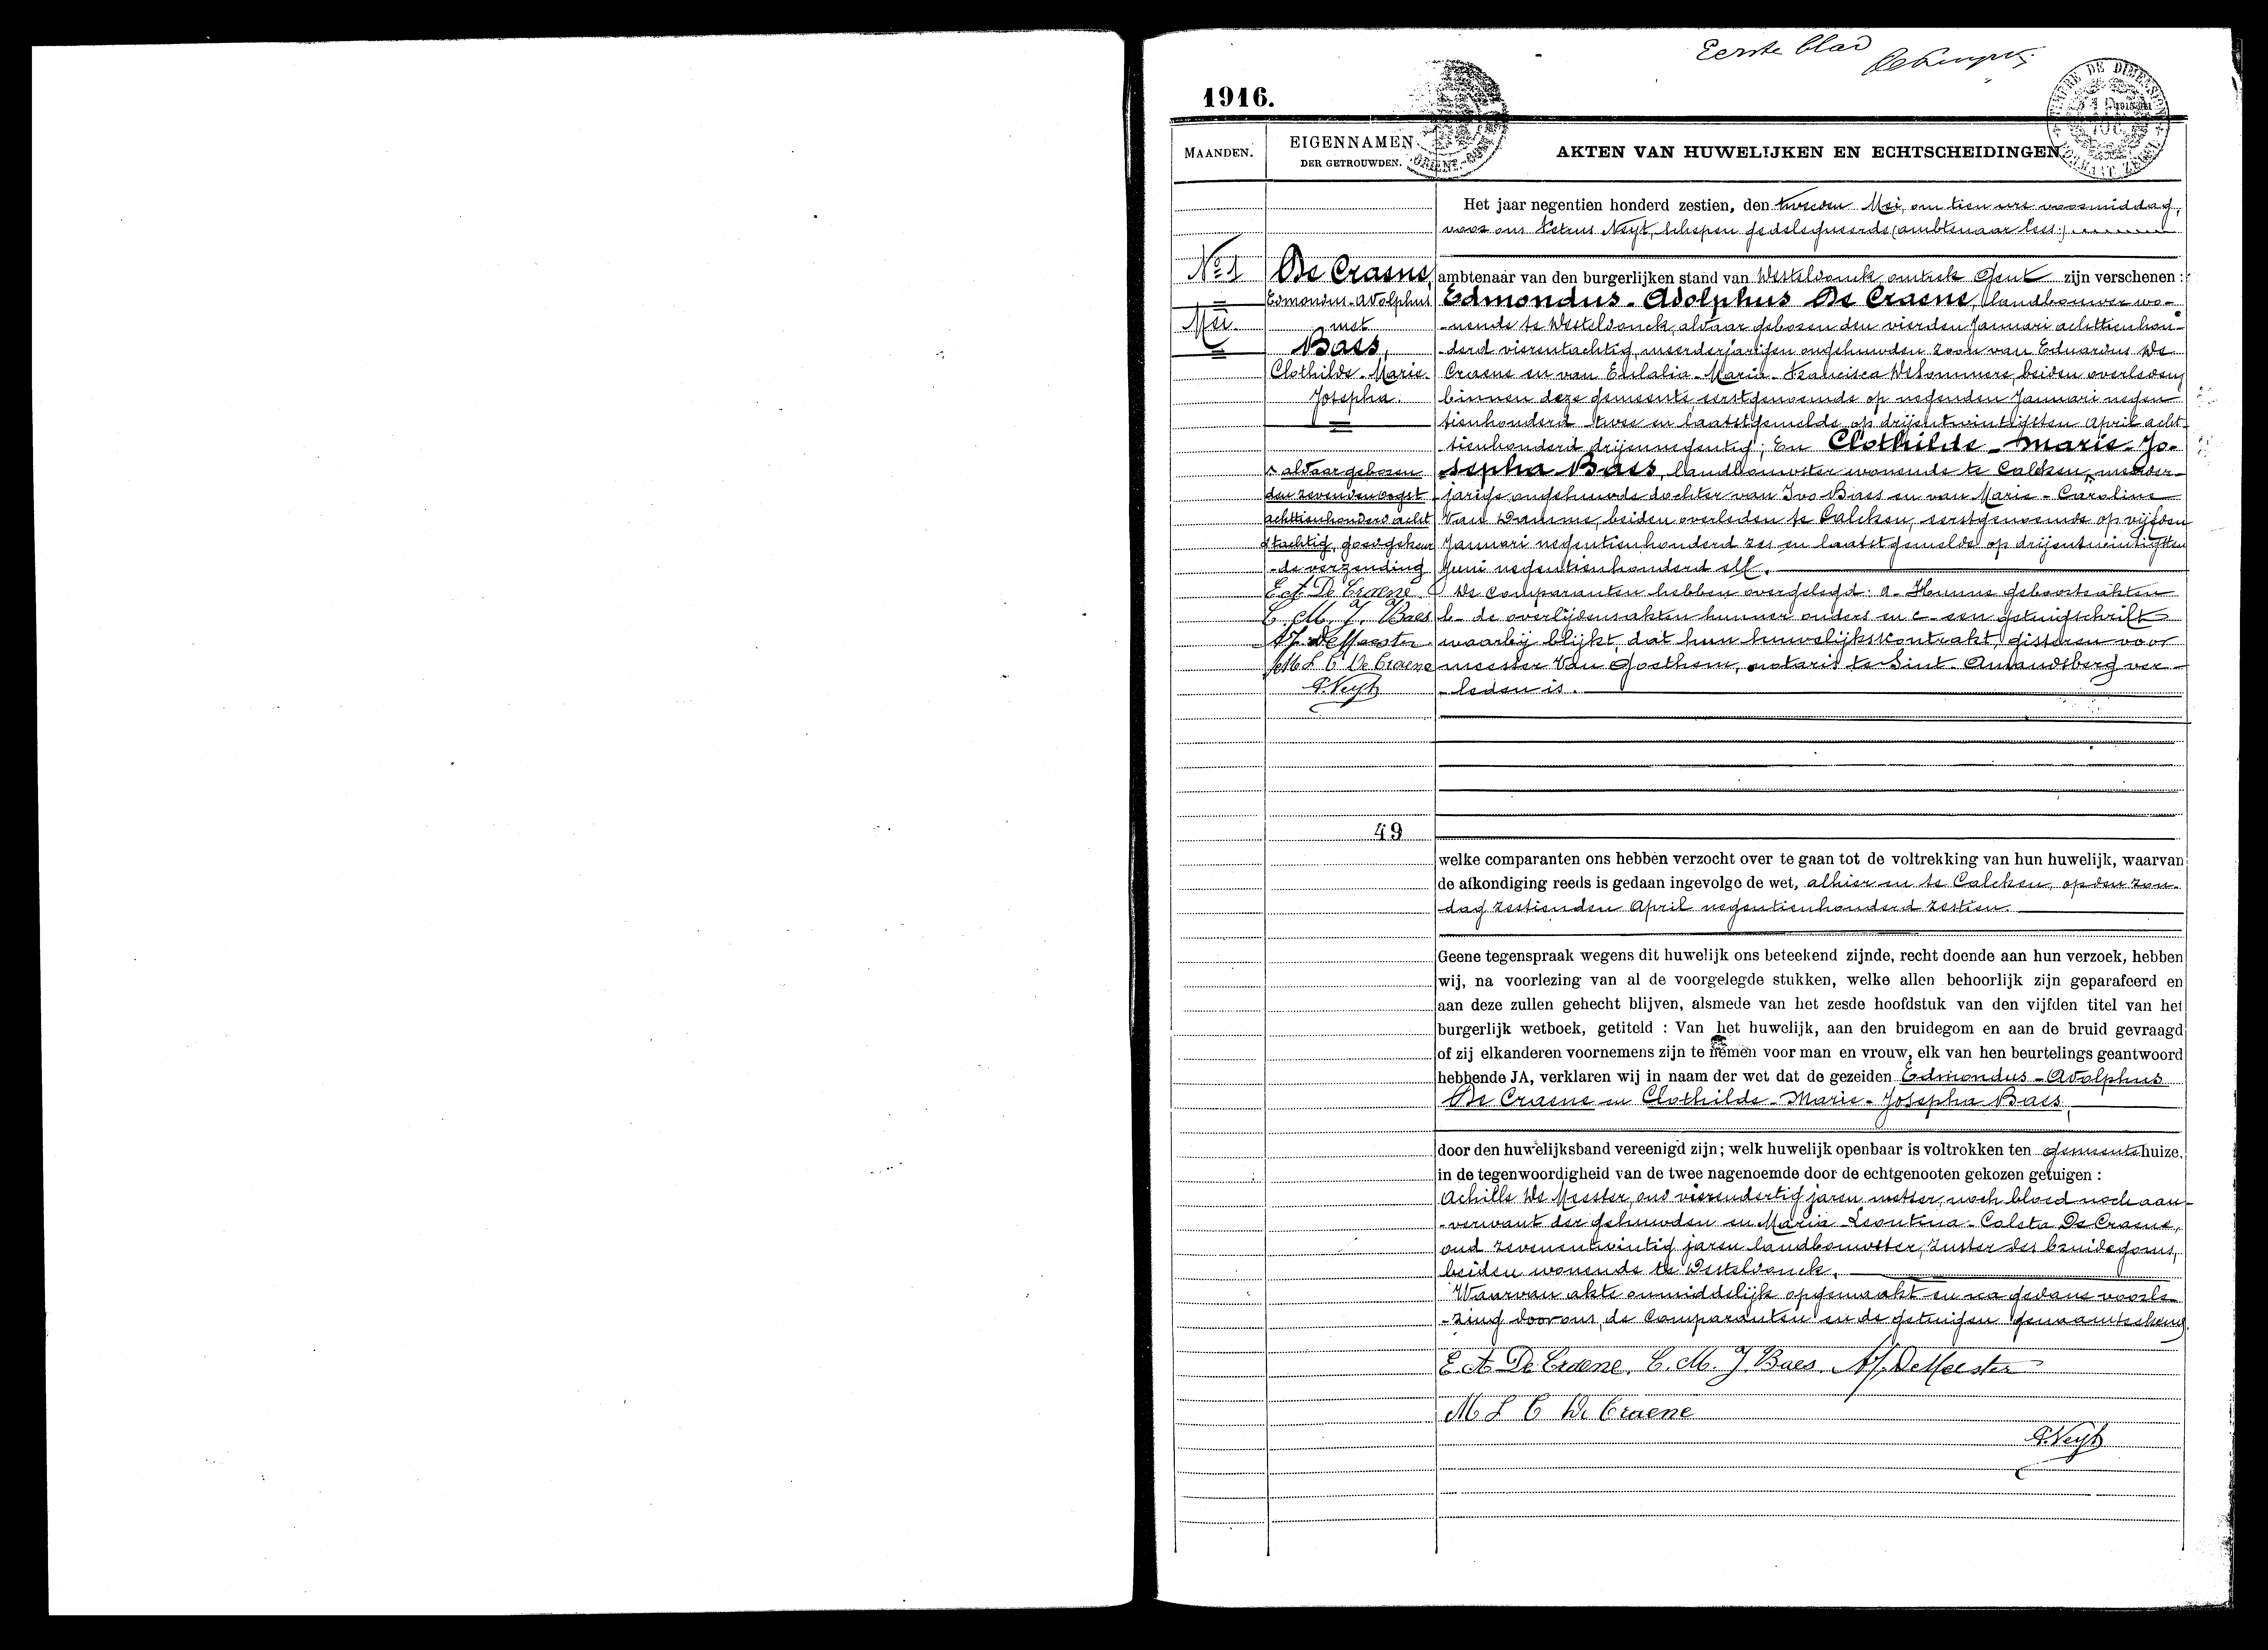 Eerste blad
1916.
MAANDEN.
EIGENNAMEN
DER GETROUWDEN.
AKTEN VAN HUWELIJKEN EN ECHTSCHEIDINGEN
No 1
Mei.
De Craene,
Edmondus-Adolphus
met
Baes,
Clothilde-Marie-
Josepha.
aldaar geboren
den zevenden oogst
achttienhonderd acht
tachtig, goedgekeur
-de verzending
E A De Craene
C. M. J. Baes
A J. De Meester
M L C De Craene
P. Neyt
49
Het jaar negentien honderd zestien, den tweeden Mei, om tien ure voormiddag,
voor ons Petrus Neyt, schepen gedelegueerde (ambtenaar lees:)
ambtenaar van den burgerlijken stand van Westeldonck omtrek Gent zijn verschenen :
Edmondus-Adolphus De Craene, landbouwer wo-
-nende te Westeldonck, aldaar geboren den vierden Januari achttienhon-
-derd vierentachtig, meerderjarigen ongehuwden zoon van Eduardus De
Craene en van Eulalia-Maria-Francisca De Sommere, beiden overleden
binnen deze gemeente, eerstgenoemde op negenden Januari negen
tienhonderd twee en laatstgemelde op drijentwintigsten April acht-
tienhonderd drijennegentig; En Clothilde-Marie-Jo-
sepha Baes, landbouwster wonende te Calcken, meerder-
jarige ongehuwde dochter van Ivo Baes en van Marie-Caroline
Van Damme, beiden overleden te Calcken, eerstgenoemde op vijfden
Januari negentienhonderd zes en laatstgemelde op drijentwintigsten
Juni negentienhonderd elf.
De Comparanten hebben overgelegd: a- Hunne geboorteakten
b- de overlijdensakten hunner ouders en c- een getuigschrift
waarbij blijkt, dat hun huwelijkskontrakt, gisteren voor
meester Van Goethem, notaris te Sint-Amandsberg ver-
-leden is.
welke comparanten ons hebben verzocht over te gaan tot de voltrekking van hun huwelijk, waarvan
de afkondiging reeds is gedaan ingevolge de wet, alhier en te Calcken, op den zon-
dag zestienden April negentienhonderd zestien.
Geene tegenspraak wegens dit huwelijk ons beteekend zijnde, recht doende aan hun verzoek, hebben
wij, na voorlezing van al de voorgelegde stukken, welke allen behoorlijk zijn geparafeerd en
aan deze zullen gehecht blijven, alsmede van het zesde hoofdstuk van den vijfden titel van het
burgerlijk wetboek, getiteld : Van het huwelijk, aan den bruidegom en aan de bruid gevraagd
of zij elkanderen voornemens zijn te nemen voor man en vrouw, elk van hen beurtelings geantwoord
hebbende JA, verklaren wij in naam der wet dat de gezeiden Edmondus-Adolphus
De Craene en Clothilde-Marie-Josepha Baes,
door den huwelijksband vereenigd zijn; welk huwelijk openbaar is voltrokken ten gemeentehuize.
in de tegenwoordigheid van de twee nagenoemde door de echtgenooten gekozen getuigen :
Achille De Meester, oud vierendertig jaren, metser, noch bloed noch aan-
-verwant der gehuwden en Maria-Leontina-Coleta De Craene,
oud zevenentwintig jaren landbouwster, zuster des bruidegoms,
beiden wonende te Westeldonck.
Waarvan akte onmiddelijk opgemaakt en na gedane voorle-
-zing door ons, de Comparanten en de getuigen genaamteekend
E A De Craene. C. M. J Baes. A J. De Meester
M L C De Craene
P. Neyt